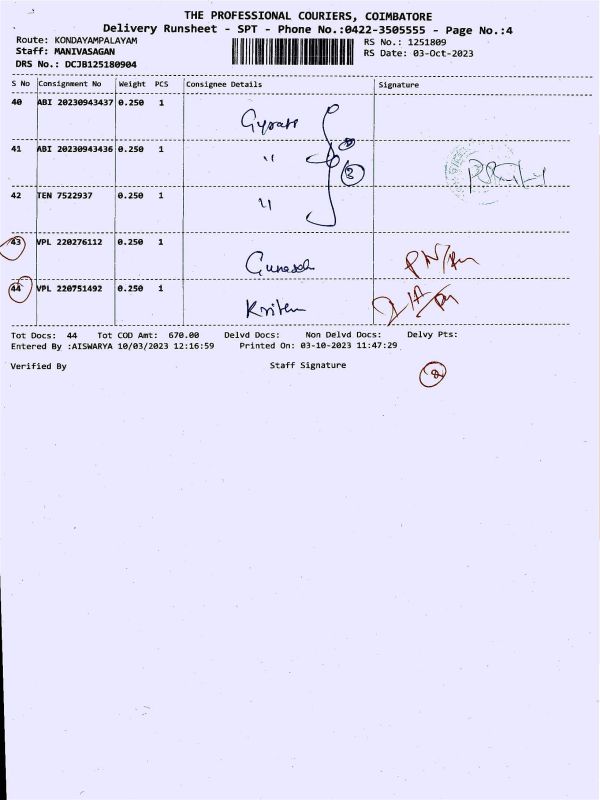 THE PROFESSIONAL COURIERS, COIMBATORE
Delivery Runsheet - SPT - Phone No.:0422-3505555 - Page No.:4
Route: KONDAYAMPALAYAM
Staff: MANIVASAGAN
DRS No.: DCJB125180904
RS No.: 1251809
RS Date: 03-Oct-2023
S No Consignment No Weight PCS Consignee Details Signature
40 ABI 20230943437 0.250 1
41 ABI 20230943436 0.250 1 "
42 TEN 7522937 0.250 1 "
43 VPL 220276112 0.250 1
44 VPL 220751492 0.250 1
Tot Docs: 44 Tot COD Amt: 670.00 Delvd Docs: Non Delvd Docs: Delvy Pts:
Entered By :AISWARYA 10/03/2023 12:16:59 Printed On: 03-10-2023 11:47:29
Verified By Staff Signature